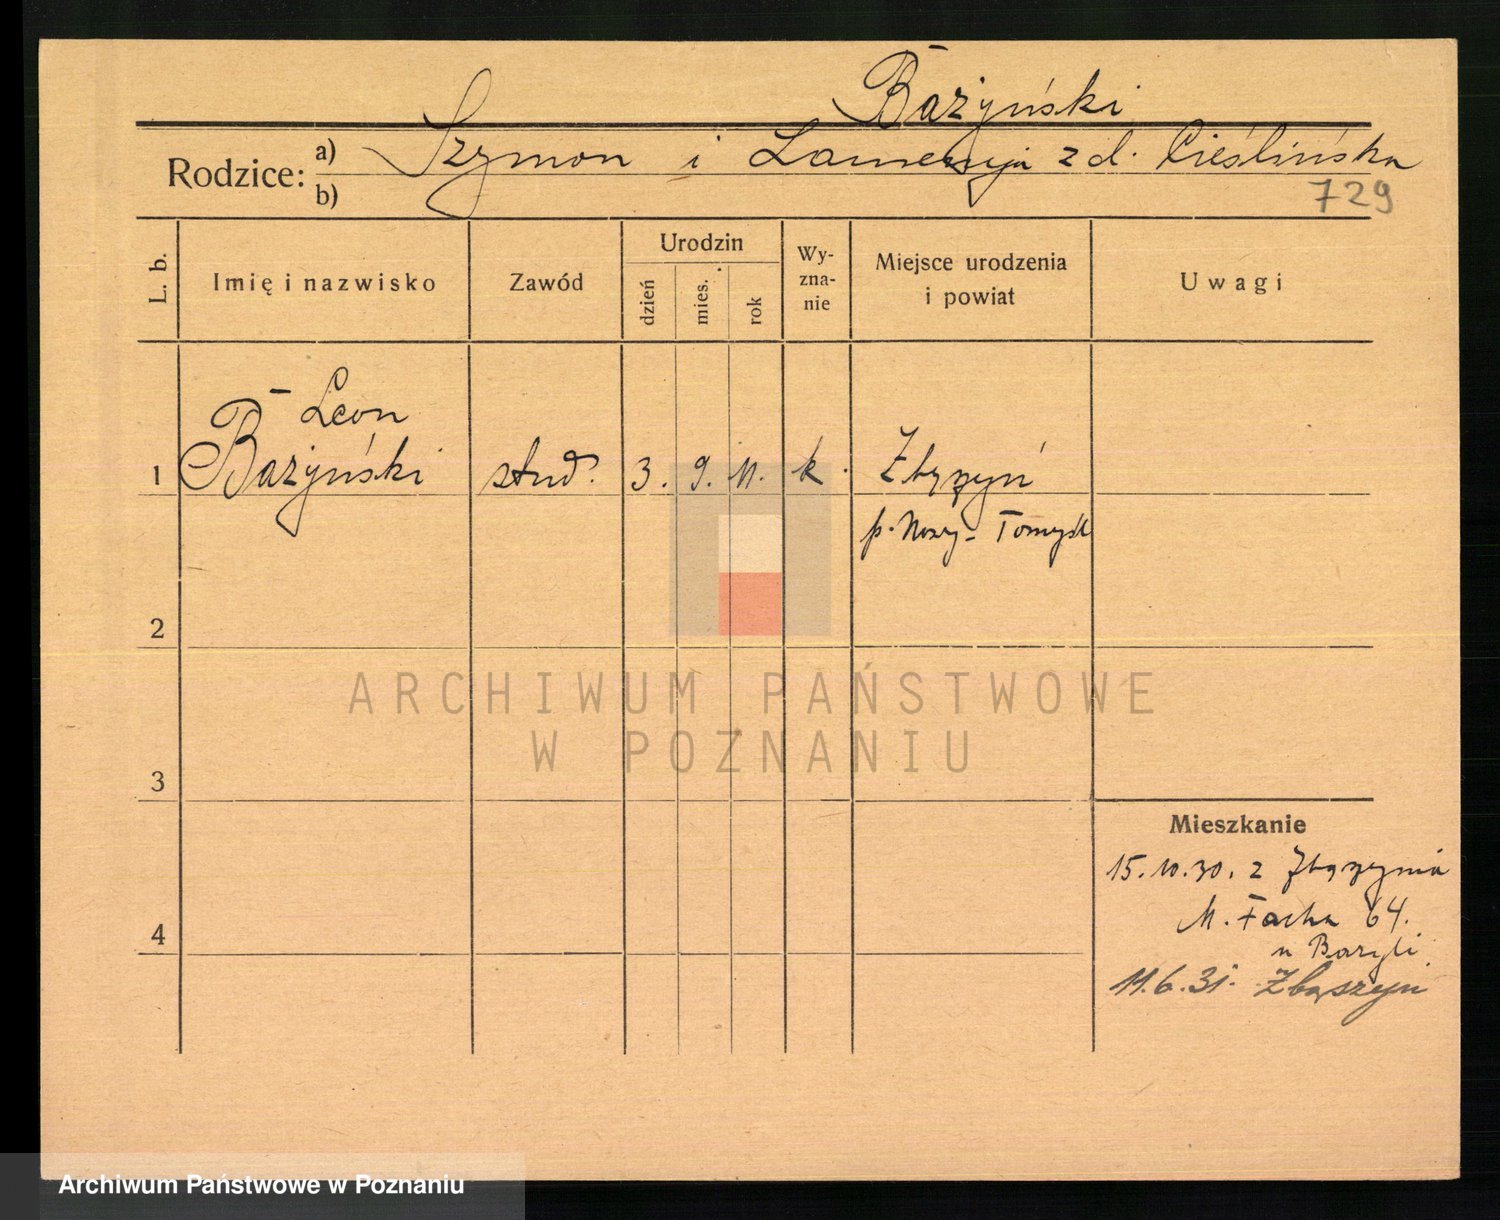 Bażyński
Rodzice: a) Szymon i z d. Cieślińska
b)
729
L. b.
Imię i nazwisko
Zawód
Urodzin
dzień
mies.
rok
Wy-
zna-
nie
Miejsce urodzenia
i powiat
Uwagi
Leon
1 Bażyński stud. 3. 9. 11. k. Zbąszyń
p. Nowy-Tomyśl
2
ARCHIWUM PAŃSTWOWE
W POZNANIU
3
Mieszkanie
15.10.30. z Zbąszynia
M. Focha 64.
4
u Baryli
11.6.31. Zbąszyń
Archiwum Państwowe w Poznaniu